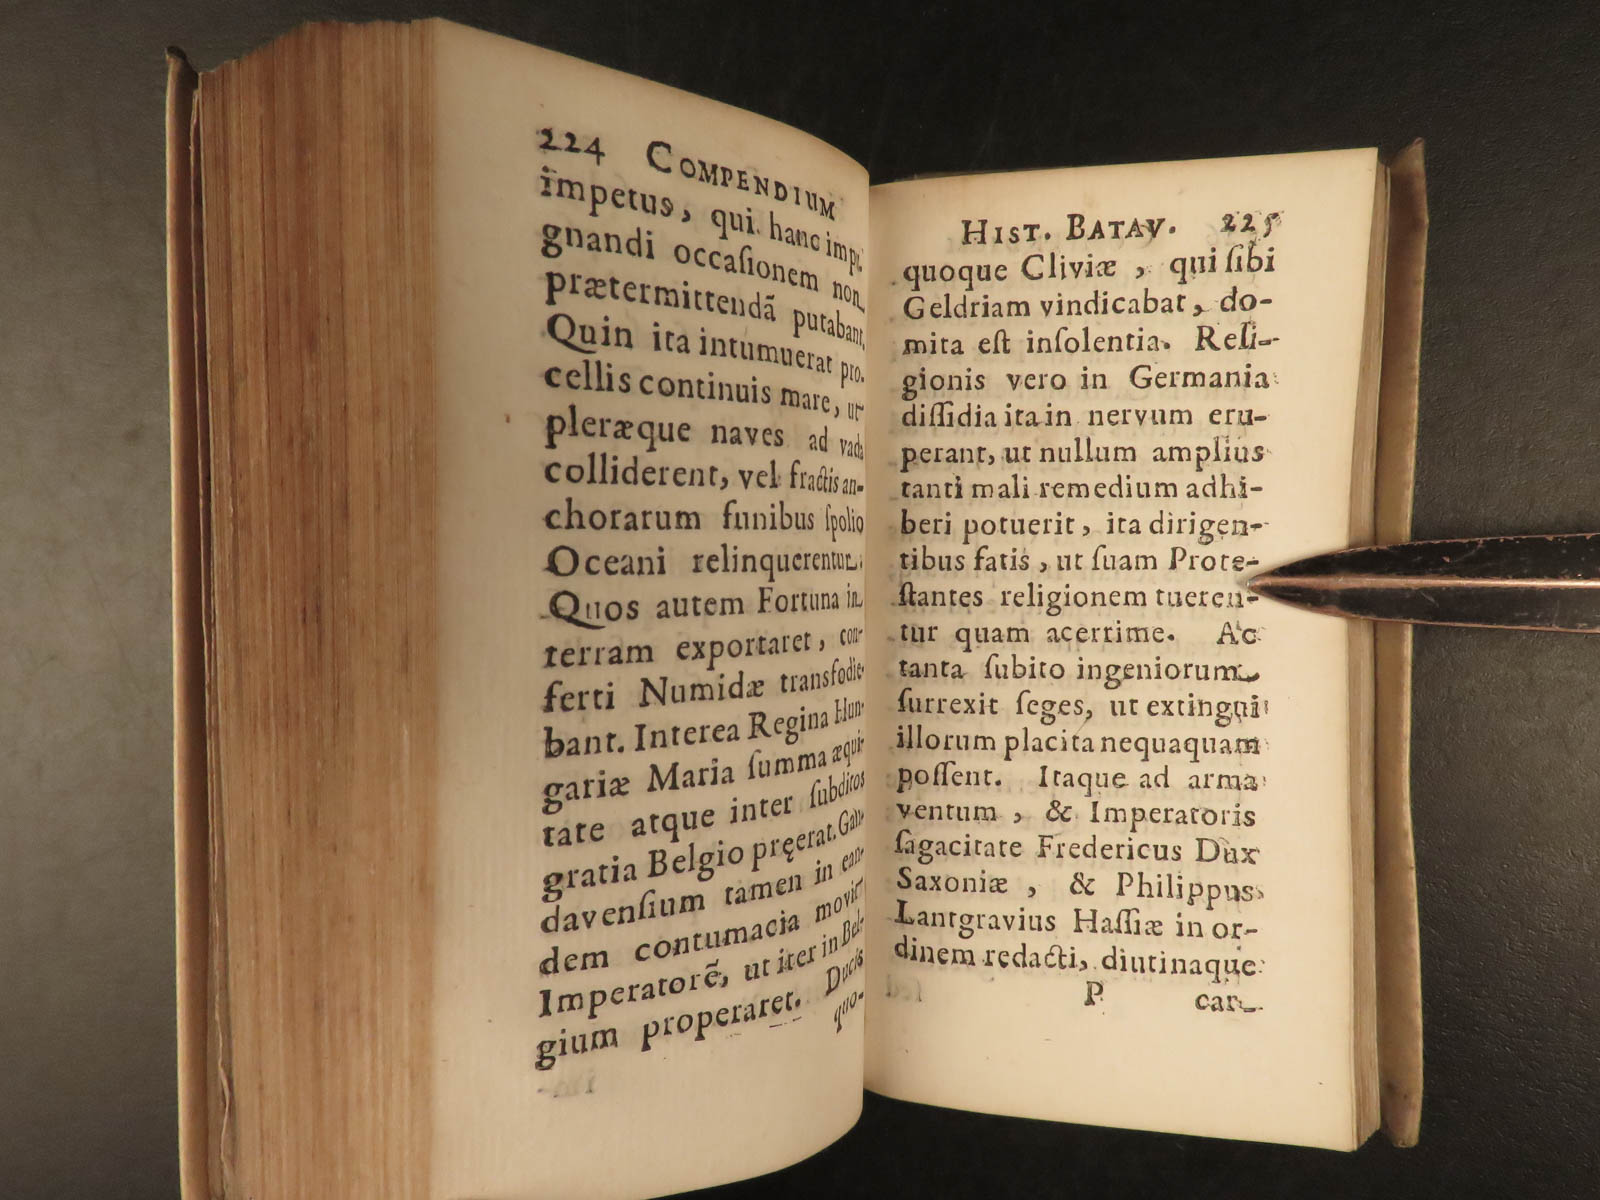 224 COMPENDIUM
impetus, qui hanc impu-
gnandi occaſionem non
prætermittendã putabant.
Quin ita intumuerat pro-
cellis continuis mare, ut
pleræque naves ad vada
colliderent, vel fractis an-
chorarum funibus ſpolio
Oceani relinquerentur.
Quos autem Fortuna in
terram exportaret, con-
ferti Numidæ transfodie-
bant. Interea Regina Hun-
gariæ Maria ſumma æqui-
tate atque inter ſubditos
gratia Belgio pręerat. Gan-
davenſium tamen in ean-
dem contumacia movit
Imperatorẽ, ut iter in Bel-
gium properaret. Ducis
quo-
HIST. BATAV. 225
quoque Cliviæ, qui ſibi
Geldriam vindicabat, do-
mita eſt inſolentia. Reli-
gionis vero in Germania
diſſidia ita in nervum eru-
perant, ut nullum amplius
tanti mali remedium adhi-
beri potuerit, ita dirigen-
tibus fatis, ut ſuam Prote-
ſtantes religionem tueren-
tur quam acerrime. Ac
tanta ſubito ingeniorum
ſurrexit ſeges, ut extingui
illorum placita nequaquam
poſſent. Itaque ad arma
ventum, & Imperatoris
ſagacitate Fredericus Dux
Saxoniæ, & Philippus
Lantgravius Haſſiæ in or-
dinem redacti, diutinaque
P car-